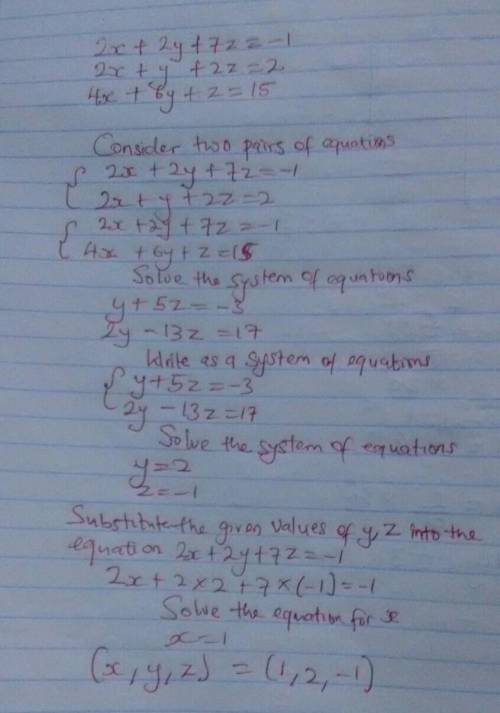 2x + 2y + 7z = -1
2x + y + 2z = 2
4x + 6y + z = 15
Consider two pairs of equations
2x + 2y + 7z = -1
2x + y + 2z = 2
2x + 2y + 7z = -1
4x + 6y + z = 15
Solve the system of equations
y + 5z = -3
2y - 13z = 17
Write as a system of equations
y + 5z = -3
2y - 13z = 17
Solve the system of equations
y = 2
z = -1
Substitute the given values of y, z into the
equation 2x + 2y + 7z = -1
2x + 2 × 2 + 7 × (-1) = -1
Solve the equation for x
x = 1
(x, y, z) = (1, 2, -1)